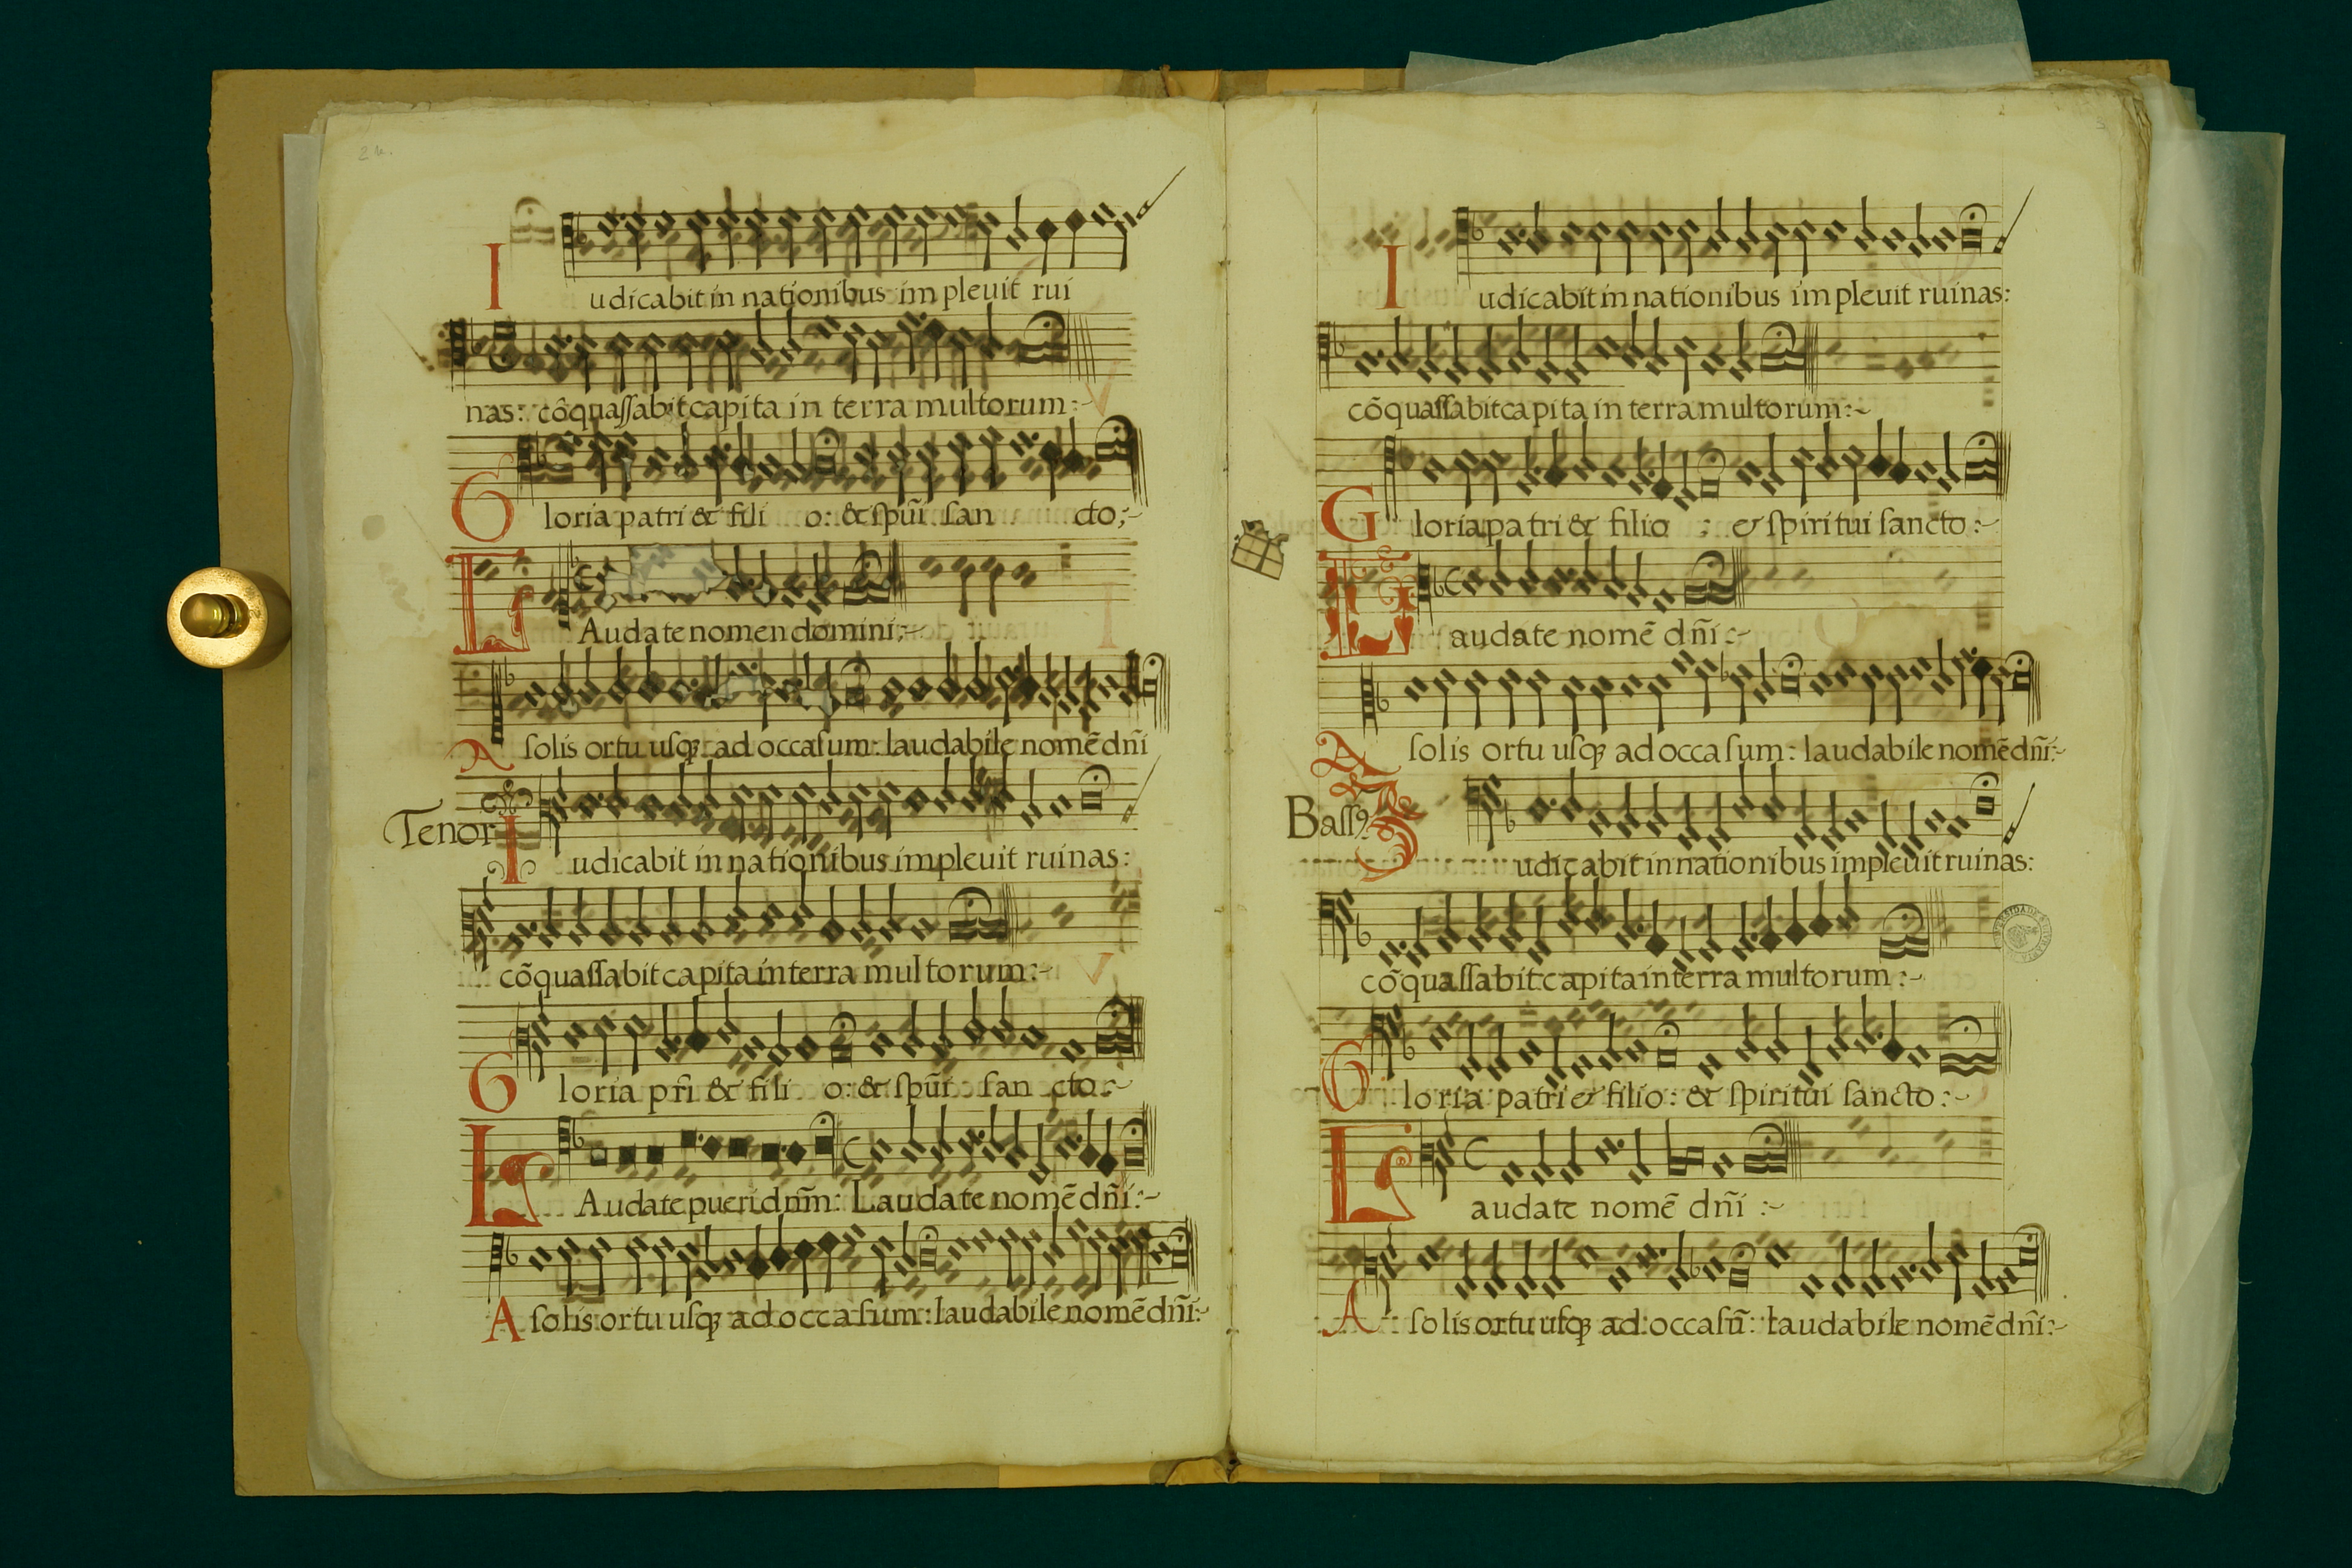 Iudicabit in nationibus impleuit rui
nas: cõquassabit capita in terra multorum:~
Gloria patri & fili o: & spũi san cto:~
LAudate nomen domini:~
A solis ortu usq; ad occasum: laudabile nomẽ dñi
Tenor
Iudicabit in nationibus impleuit ruinas:
cõquassabit capita in terra multorum:~
Gloria pr̃i & fili o: & spũi san cto:~
LAudate pueri dñm: Laudate nomẽ dñi:~
A solis ortu usq; ad occasum: laudabile nomẽ dñi:~
Iudicabit in nationibus impleuit ruinas:
cõquassabit capita in terra multorum:~
Gloria patri & filio : & spiritui sancto:~
Laudate nomẽ dñi:~
A solis ortu usq; ad occasum: laudabile nomẽ dñi:~
Bassꝰ
Iudicabit in nationibus impleuit ruinas:
cõquassabit capita in terra multorum:~
Gloria patri & filio: & spiritui sancto:~
Laudate nomẽ dñi:~
A solis ortu usq; ad occasũ: laudabile nomẽ dñi:~